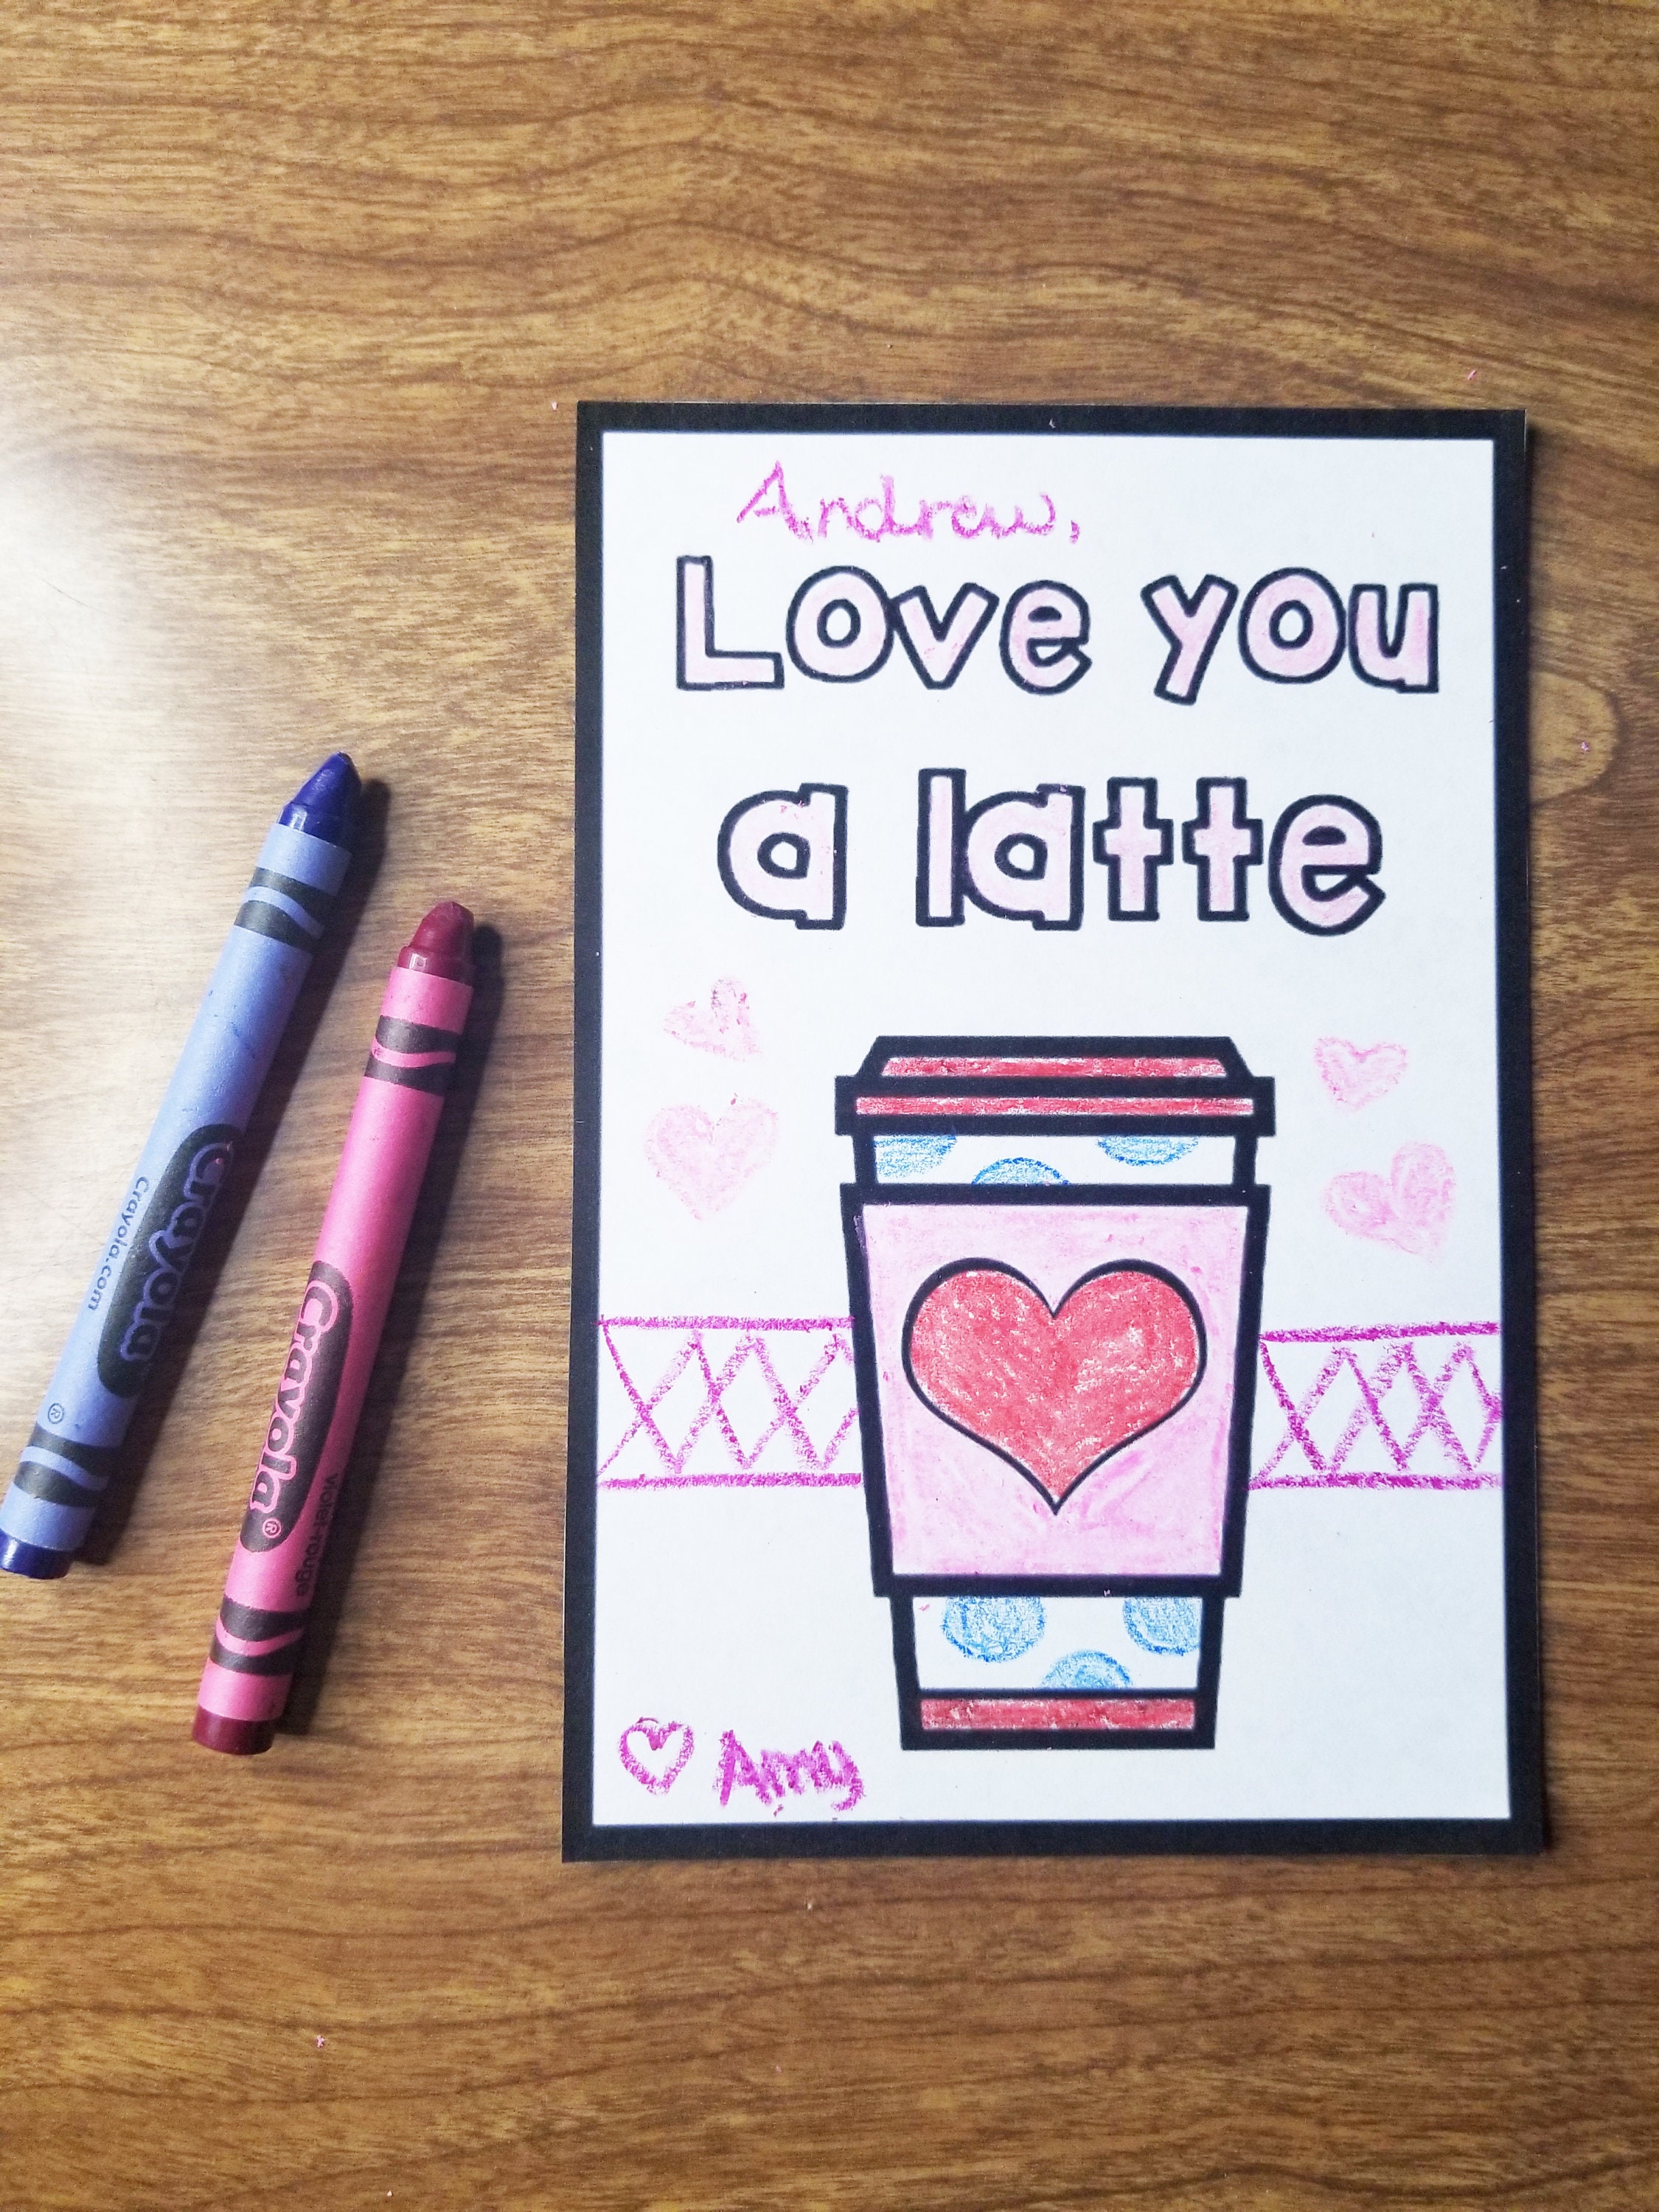 Andrew,
Love you
a latte
♡ Amy
Crayola
Crayola.com
®
Crayola®
violet rouge